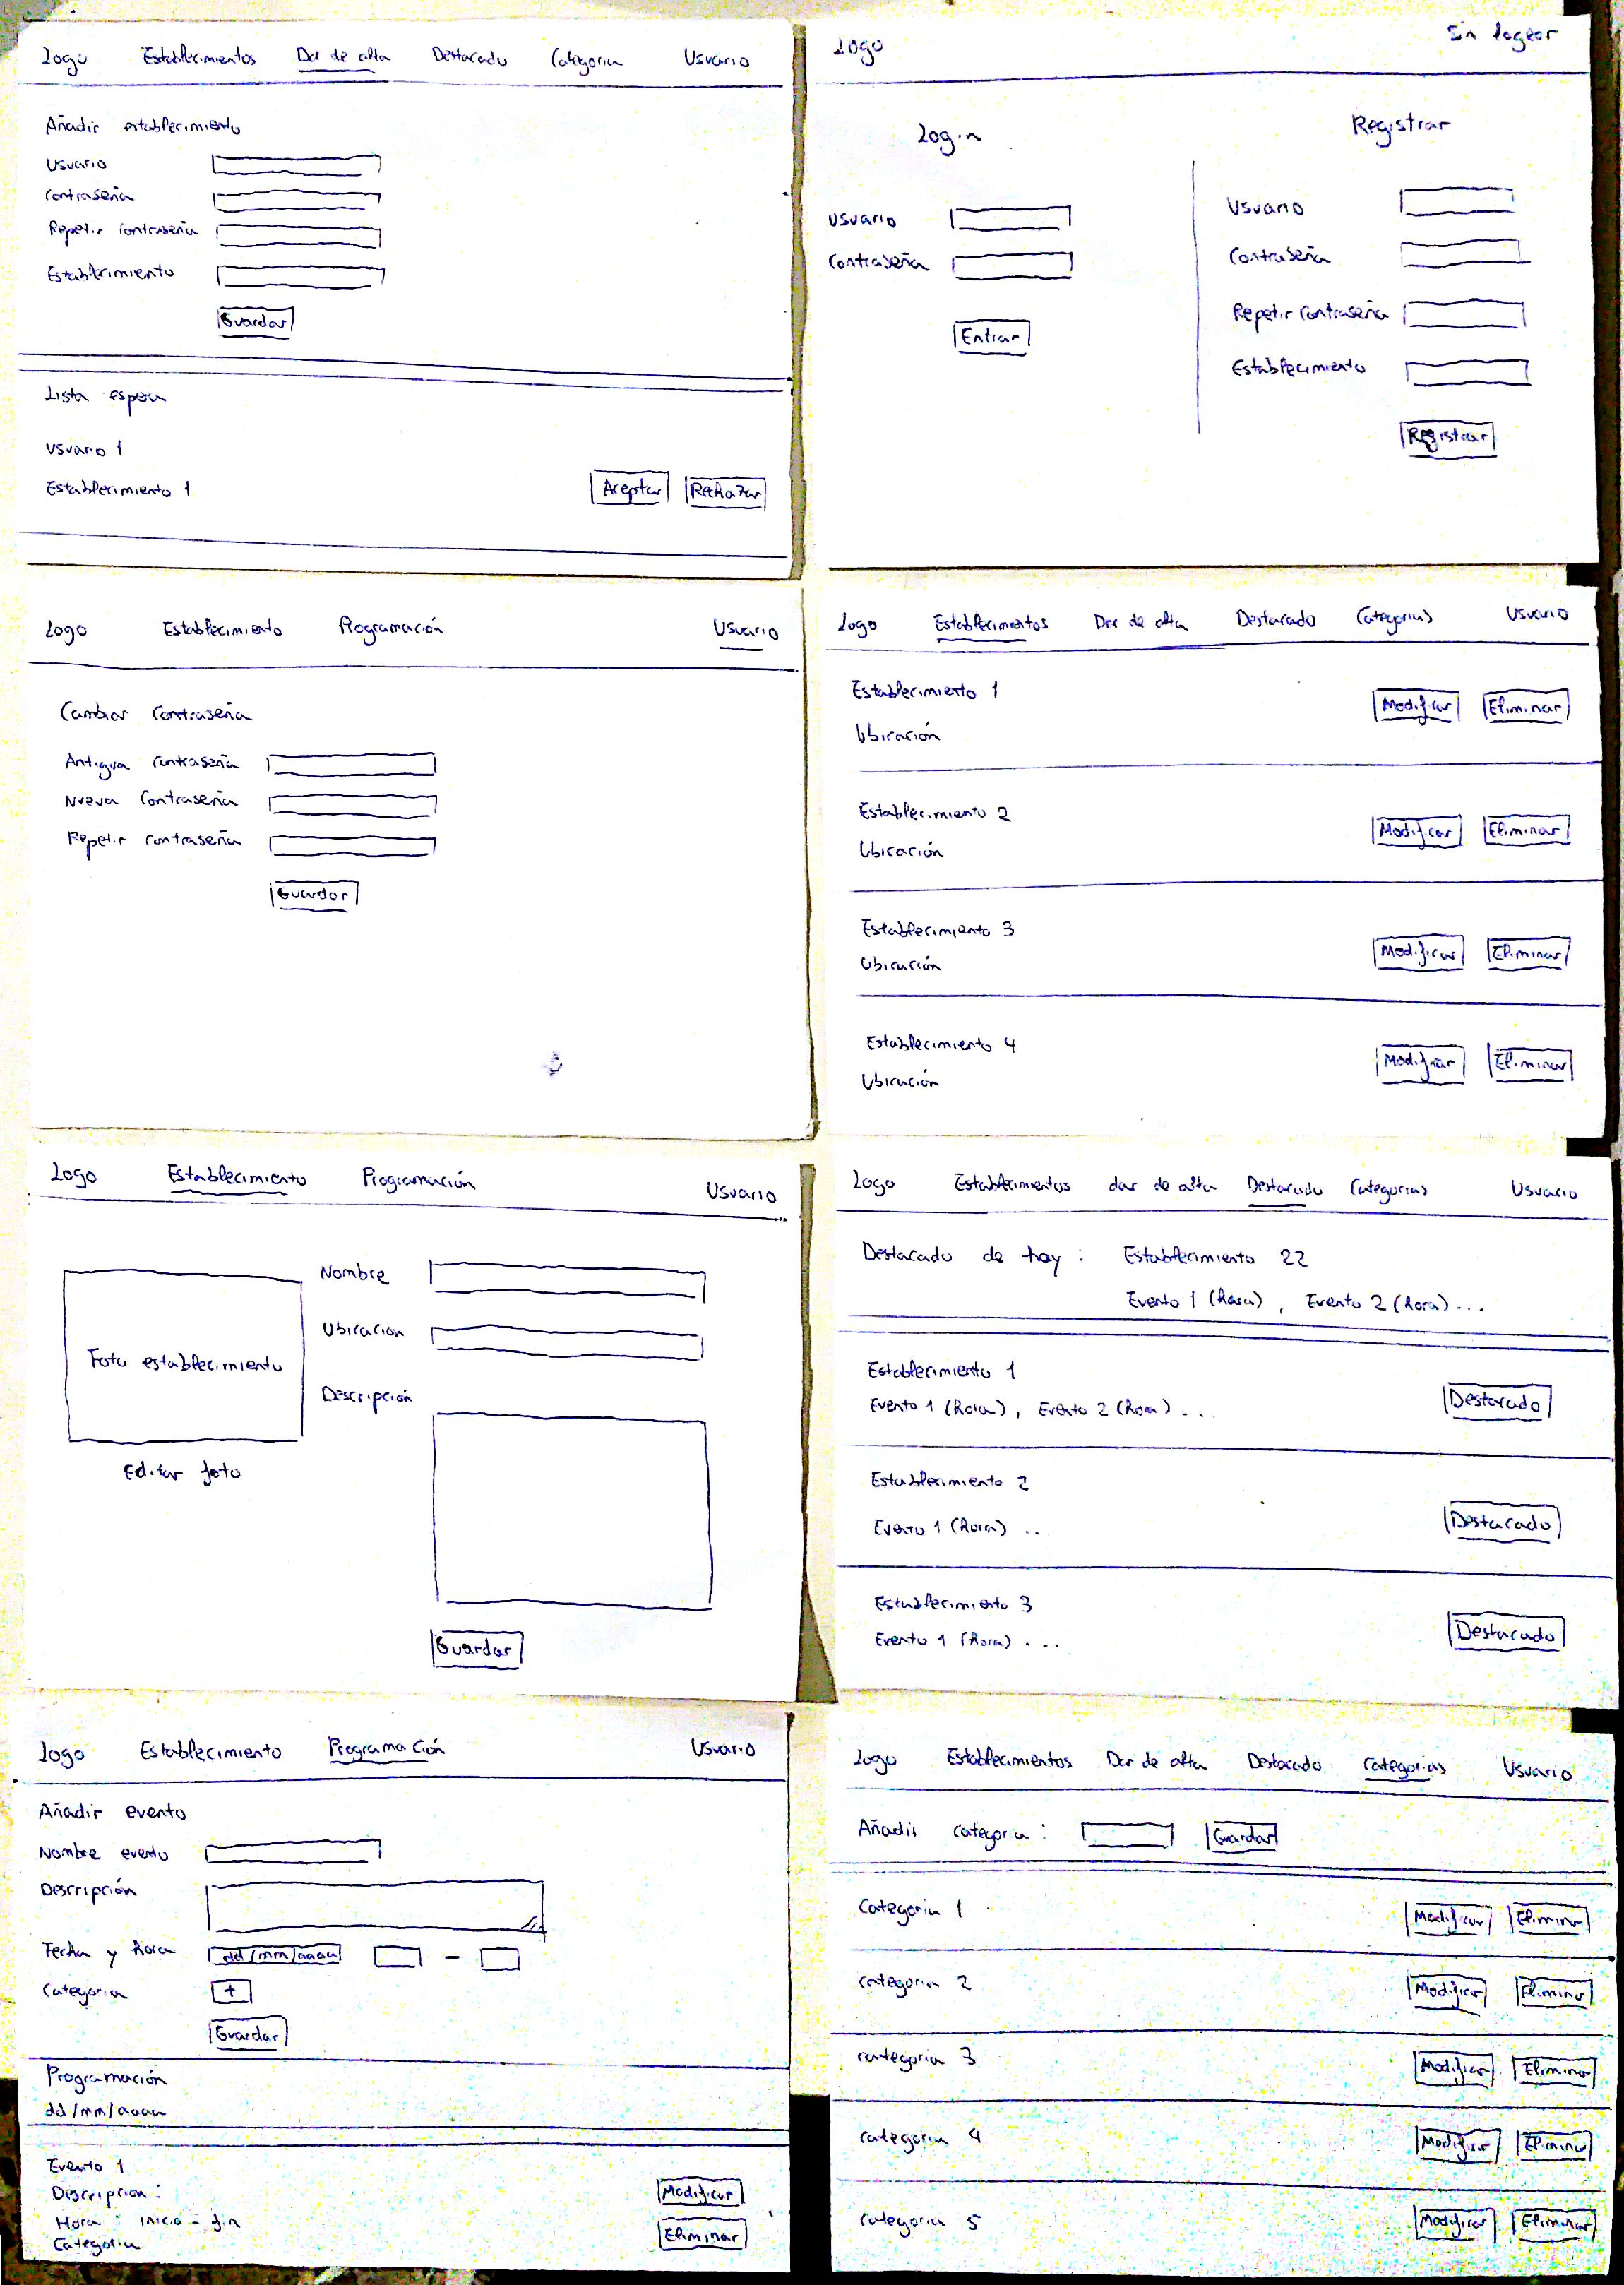 Logo Establecimientos Dar de alta Destacado Categoria Usuario
Añadir establecimiento
Usuario
Contraseña
Repetir contraseña
Establecimiento
Guardar
Lista espera
Usuario 1
Establecimiento 1
Aceptar Rechazar
Logo Sin logear
Login Registrar
Usuario
Contraseña
Entrar
Usuario
Contraseña
Repetir contraseña
Establecimiento
Registrar
Logo Establecimiento Programación Usuario
Cambiar contraseña
Antigua contraseña
Nueva contraseña
Repetir contraseña
Guardar
Logo Establecimientos Dar de alta Destacado Categorias Usuario
Establecimiento 1
Ubicación
Modificar Eliminar
Establecimiento 2
Ubicación
Modificar Eliminar
Establecimiento 3
Ubicación
Modificar Eliminar
Establecimiento 4
Ubicación
Modificar Eliminar
Logo Establecimiento Programación Usuario
Foto establecimiento
Editar foto
Nombre
Ubicacion
Descripción
Guardar
Logo Establecimientos dar de alta Destacado Categorias Usuario
Destacado de hoy : Establecimiento 22
Evento 1 (hora) , Evento 2 (hora) ...
Establecimiento 1
Evento 1 (hora) , Evento 2 (hora) ...
Destacado
Establecimiento 2
Evento 1 (hora) ..
Destacado
Establecimiento 3
Evento 1 (hora) ...
Destacado
Logo Establecimiento Programación Usuario
Añadir evento
Nombre evento
Descripción
Fecha y hora dd/mm/aaaa -
Categoria +
Guardar
Programación
dd/mm/aaaa
Evento 1
Descripcion :
Hora : inicio - fin
Categoria
Modificar
Eliminar
Logo Establecimientos Dar de alta Destacado Categorias Usuario
Añadir categoria : Guardar
Categoria 1 Modificar Eliminar
categoria 2 Modificar Eliminar
categoria 3 Modificar Eliminar
categoria 4 Modificar Eliminar
categoria 5 Modificar Eliminar